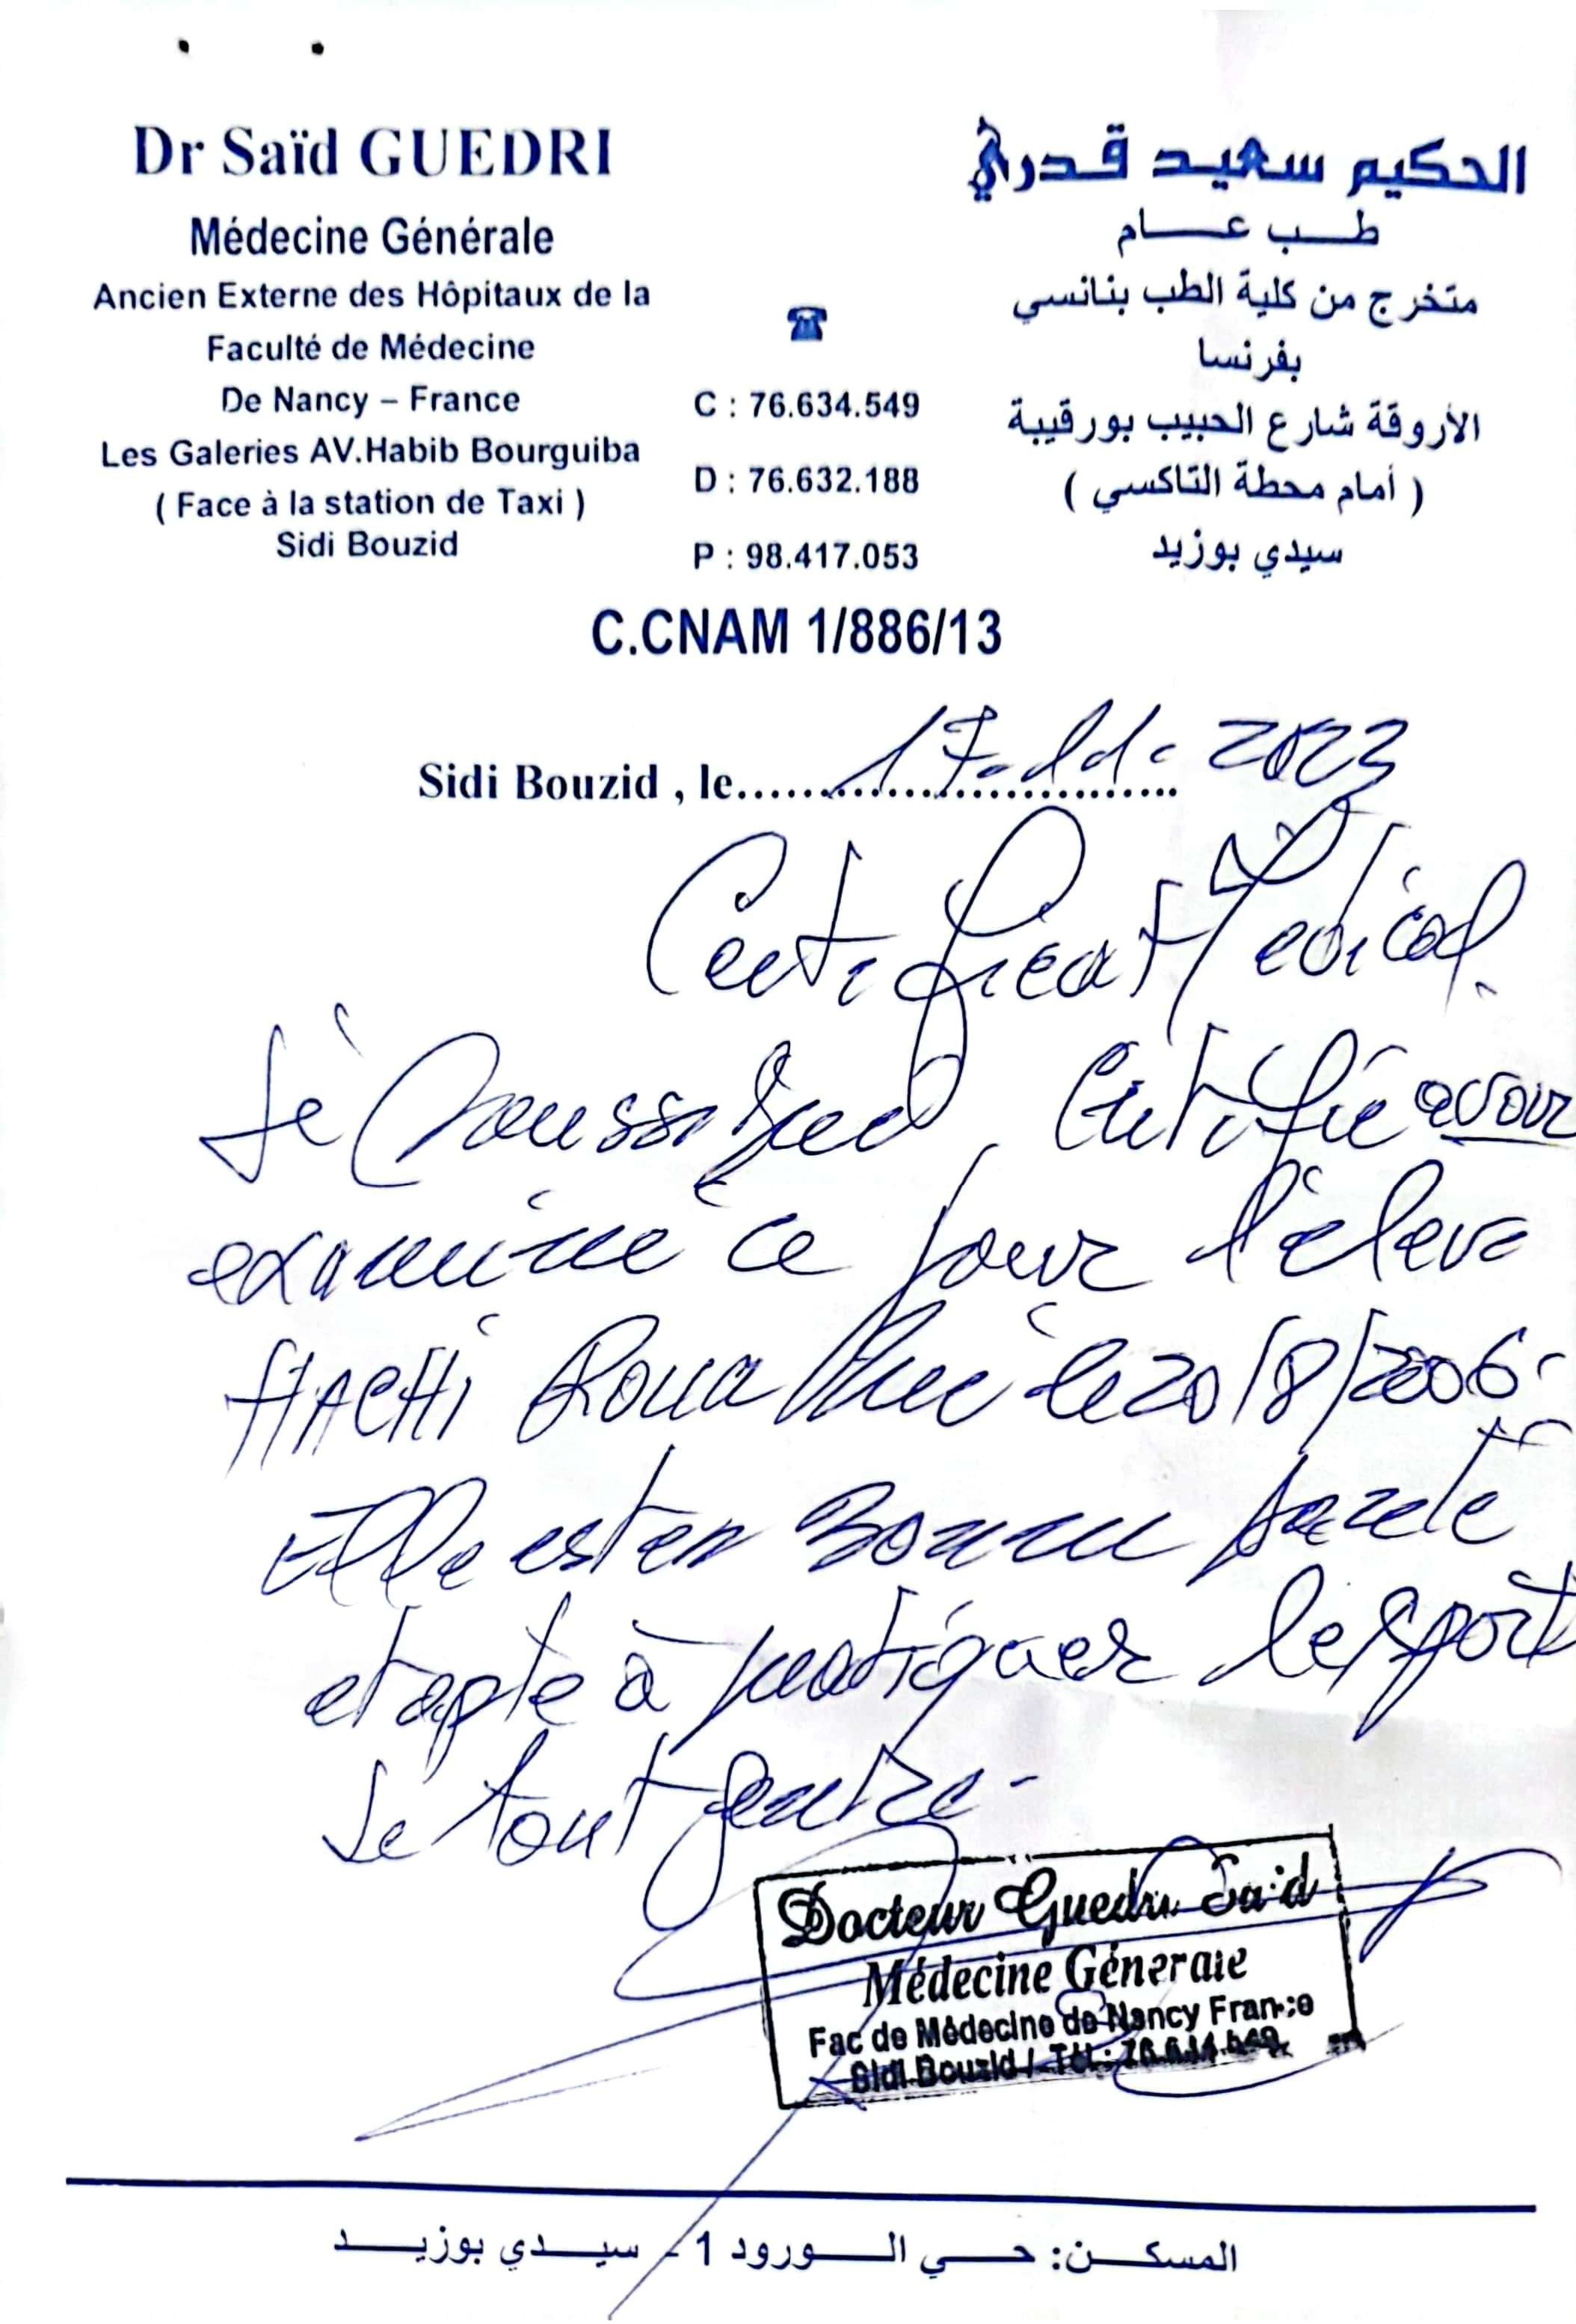 Dr Saïd GUEDRI
Médecine Générale
Ancien Externe des Hôpitaux de la
Faculté de Médecine
De Nancy – France
Les Galeries AV.Habib Bourguiba
( Face à la station de Taxi )
Sidi Bouzid
☎
C : 76.634.549
D : 76.632.188
P : 98.417.053
الحكيم سعيد قدري
طب عام
متخرج من كلية الطب بنانسي
بفرنسا
الأروقة شارع الحبيب بورقيبة
( أمام محطة التاكسي )
سيدي بوزيد
C.CNAM 1/886/13
Sidi Bouzid , le 17.11. 2023
Certificat Medical
Je Soussigné, Certifie avoir
examiné ce jour l'élève
HACHI Roua Née le 20/8/2006
Elle est en Bonne santé
et apte à pratiquer le sport
de tout genre.
Docteur Guedri Said
Médecine Génerale
Fac de Médecine de Nancy France
Sidi Bouzid / Tél.: 76.634.549
المسكن: حي الورود 1 - سيدي بوزيد